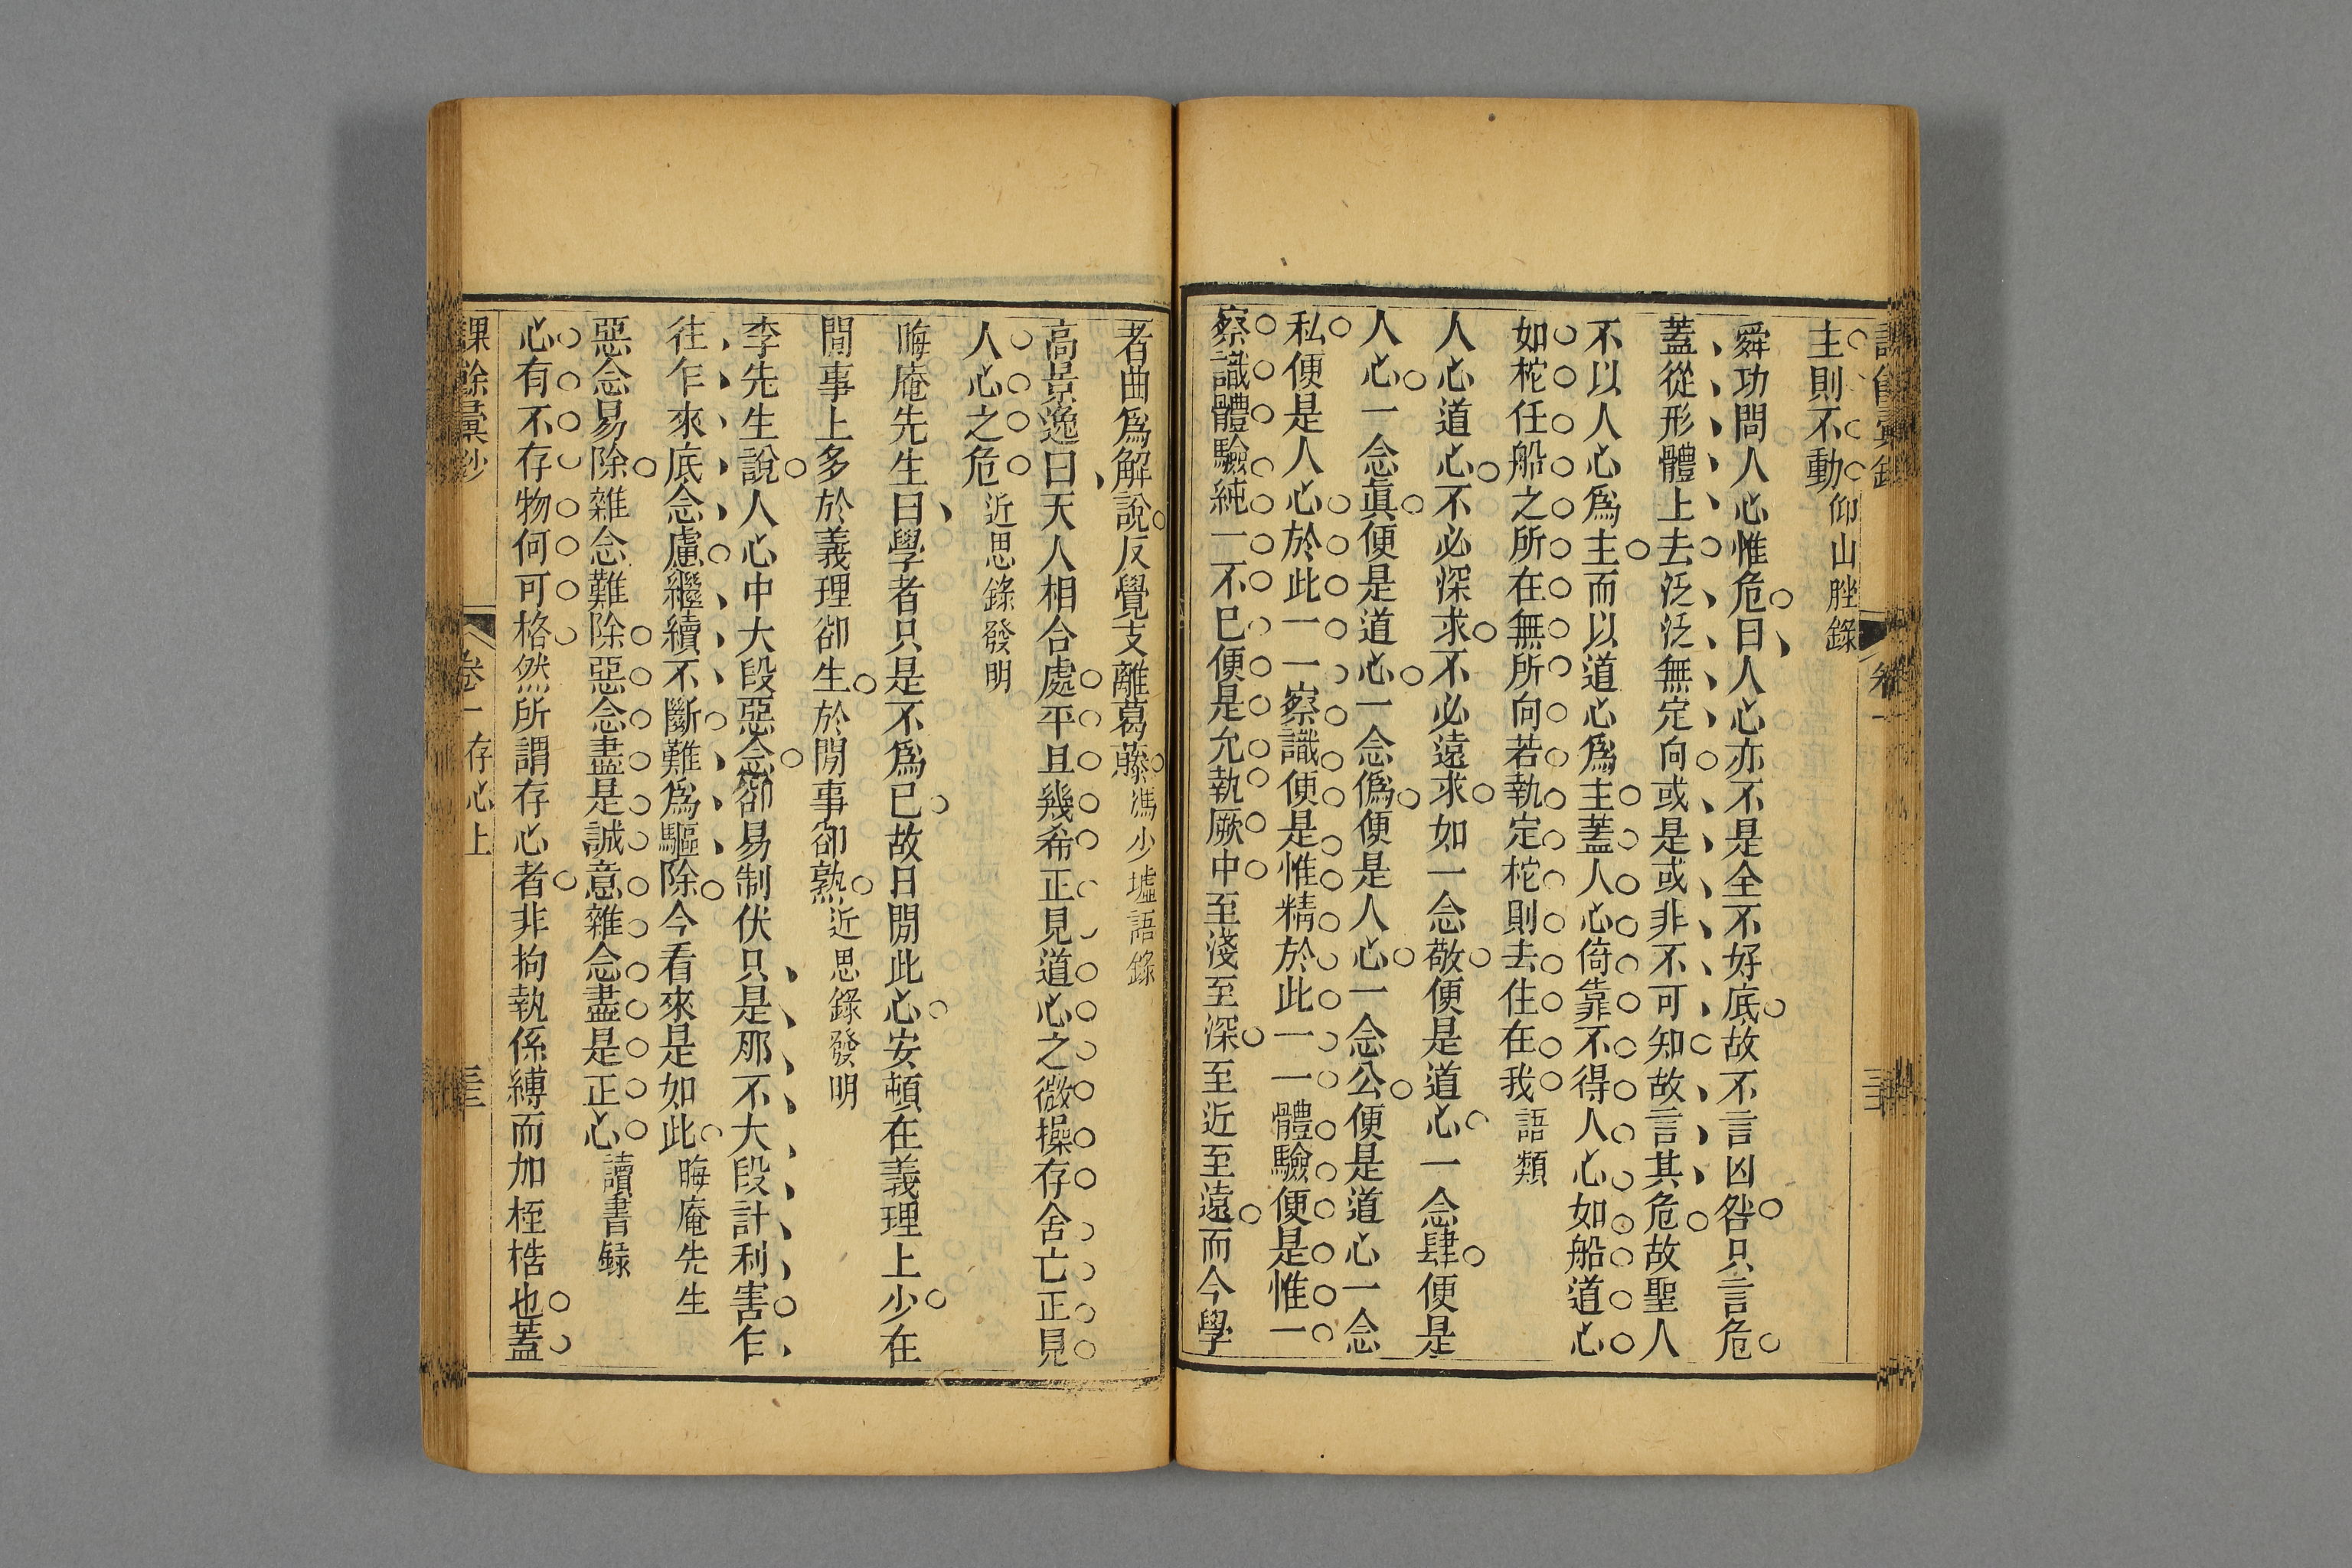 主則不動仰山脞錄
舜功問人心惟危曰人心亦不是全不好底故不言凶咎只言危
蓋從形體上去泛泛無定向或是或非不可知故言其危故聖人
不以人心爲主而以道心爲主蓋人心倚靠不得人心如船道心
如柁任船之所在無所向若執定柁則去住在我語類
人心道心不必深求不必遠求如一念敬便是道心一念肆便是
人心一念眞便是道心一念僞便是人心一念公便是道心一念
私便是人心於此一一察識便是惟精於此一一體驗便是惟一
察識體驗純一不已便是允執厥中至淺至深至近至遠而今學
者曲爲解說反覺支離葛藤馮少墟語錄
高景逸曰天人相合處平旦幾希正見道心之微操存舍亡正見
人心之危近思錄發明
晦庵先生曰學者只是不爲已故日閒此心安頓在義理上少在
閒事上多於義理卻生於閒事卻熟近思錄發明
李先生說人心中大段惡念卻易制伏只是那不大段計利害乍
往乍來底念慮繼續不斷難爲驅除今看來是如此晦庵先生
惡念易除雜念難除惡念盡是誠意雜念盡是正心讀書錄
心有不存物何可格然所謂存心者非拘執係縛而加桎梏也蓋
課餘彙鈔 卷一 存心上 三